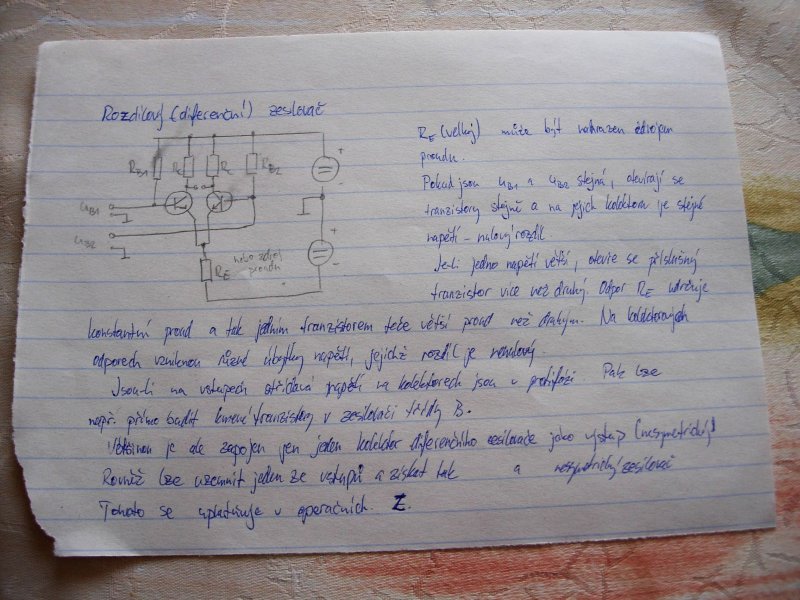 Rozdílový (diferenční) zesilovač
RB1 RC RC RB2
uB1
uB2
RE
nebo zdroj
proudu
+
-
+
-
RE (velký) může být nahrazen zdrojem
proudu.
Pokud jsou uB1 a uB2 stejná, otevírají se
tranzistory stejně a na jejich kolektoru je stejné
napětí - nulový rozdíl
Je-li jedno napětí větší, otevře se příslušný
tranzistor více než druhý. Odpor RE udržuje
konstantní proud a tak jedním tranzistorem teče větší proud než druhým. Na kolektorových
odporech vzniknou různé úbytky napětí, jejichž rozdíl je nenulový.
Jsou-li na vstupech střídavá napětí na kolektorech jsou v protifázi. Pak lze
např. přímo budit koncové tranzistory v zesilovači třídy B.
Většinou je ale zapojen jen jeden kolektor diferenčního zesilovače jako výstup (nesymetrický)
Rovněž lze uzemnit jeden ze vstupů a získat tak a nesymetrický zesilovač
Tohoto se uplatňuje v operačních Z.